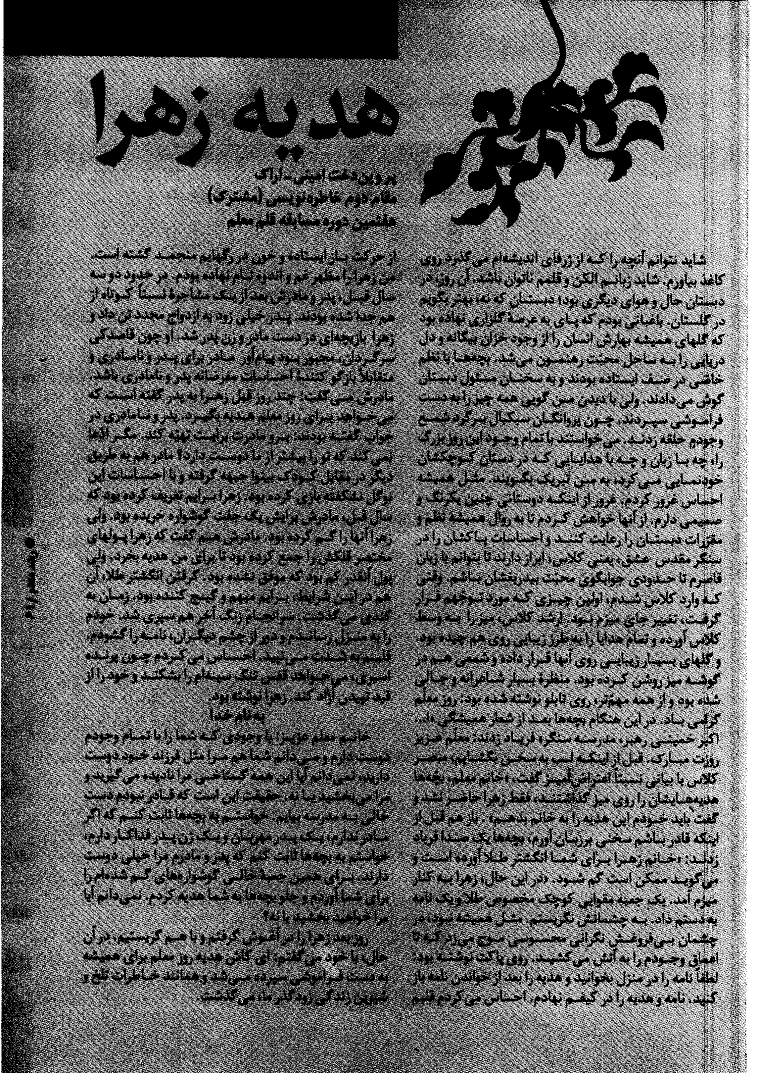 هدیه زهرا
پروین‌دخت امینی - اراک
مقام دوم خاطره‌نویسی (مشترک)
هفتمین دوره مسابقه قلم معلم
شاید نتوانم آنچه را که از ژرفای اندیشه‌ام می‌گذرد روی
کاغذ بیاورم. شاید زبانم الکن و قلمم ناتوان باشد. آن روز، در
دبستان حال و هوای دیگری بود؛ دبستان که نه، بهتر بگویم
در گلستان. باغبانی بودم که پای به عرصهٔ گلزاری نهاده بود
که گلهای همیشه بهارش انسان را از وجود خزان بیگانه و دل
دریایی را به ساحل محبت رهنمون می‌شد. بچه‌ها با نظم
خاصی در صف ایستاده بودند و به سخنان مسئول دبستان
گوش می‌دادند. ولی با دیدن من گویی همه چیز را به دست
فراموشی سپردند. چون پروانگان سبکبال برگرد شمع
وجودم حلقه زدند. می‌خواستند با تمام وجود این روز بزرگ
را، چه با زبان و چه با هدایایی که در دستان کوچکشان
خودنمایی می‌کرد به من تبریک بگویند. مثل همیشه
احساس غرور کردم، غرور از اینکه دوستانی چنین یکرنگ و
صمیمی دارم. از آنها خواهش کردم تا به روال همیشه نظم و
مقررات دبستان را رعایت کنند و احساسات پاکشان را در
سنگر مقدس عشق، یعنی کلاس، ابراز دارند تا بتوانم با زبان
قاصرم تا حدودی جوابگوی محبت بیدریغشان باشم. وقتی
که وارد کلاس شدم، اولین چیزی که مورد توجهم قرار
گرفت، تغییر جای میزم بود. ارشد کلاس، میز را به وسط
کلاس آورده و تمام هدایا را به طرز زیبایی روی هم چیده بود
و گلهای بسیار زیبایی روی آنها قرار داده و شمعی هم در
گوشه میز روشن کرده بود. منظرهٔ بسیار شاعرانه و جالبی
شده بود و از همه مهم‌تر، روی تابلو نوشته شده بود: روز معلم
گرامی باد. در این هنگام بچه‌ها بعد از شعار همیشگی «ا...
اکبر خمینی رهبر، مدرسه سنگر» فریاد زدند: معلم عزیز
روزت مبارک. قبل از اینکه لب به سخن بگشایم، مبصر
کلاس با بیانی نسبتاً اعتراض‌آمیز گفت: «خانم معلم، بچه‌ها
هدیه‌هایشان را روی میز گذاشتند، فقط زهرا حاضر نشد و
گفت باید خودم این هدیه را به خانم بدهم.» باز هم قبل از
اینکه قادر باشم سخنی برزبان آورم، بچه‌ها یک صدا فریاد
زدند: «خانم زهرا برای شما انگشتر طلا آورده است و
می‌گوید ممکن است گم شود. «در این حال، زهرا به کنار
میزم آمد. یک جعبه مقوایی کوچک مخصوص طلا و یک نامه
به دستم داد. به چشمانش نگریستم. مثل همیشه نبود، در
چشمان بی‌فروغش نگرانی محسوسی موج می‌زد که تا
اعماق وجودم را به آتش می‌کشید. روی پاکت نوشته بود:
لطفاً نامه را در منزل بخوانید و هدیه را بعد از خواندن نامه باز
کنید. نامه و هدیه را در کیفم نهادم. احساس می‌کردم قلبم
از حرکت باز ایستاده و خون در رگهایم منجمد گشته است.
من زهرا را مظهر غم و اندوه نام نهاده بودم. در حدود دو سه
سال قبل، پدر و مادرش بعد از یک مشاجرهٔ نسبتاً کوتاه از
هم جدا شده بودند. پدر خیلی زود به ازدواج مجدد تن داد و
زهرا بازیچه‌ای در دست مادر و زن پدر شد. او چون قاصدکی
سرگردان، مجبور بود پیام‌آور مادر برای پدر و نامادری و
متقابلاً بازگو کنندهٔ احساسات مغرضانه پدر و نامادری باشد.
مادرش می‌گفت: چند روز قبل زهرا به پدر گفته است که
می‌خواهد برای روز معلم هدیه بگیرد. پدر و نامادری در
جواب گفته بودند: برو مادرت برایت تهیه کند. مگر ادعا
نمی‌کند که تو را بیشتر از ما دوست دارد؟ مادر هم به طریق
دیگر در مقابل کودک بینوا جبهه گرفته و با احساسات این
نوگل نشکفته بازی کرده بود. زهرا برایم تعریف کرده بود که
سال قبل، مادرش برایش یک جفت گوشواره خریده بود. ولی
زهرا آنها را گم کرده بود. مادرش هم گفت که زهرا پولهای
مختصر قلکش را جمع کرده بود تا برای من هدیه بخرد. ولی
پول آنقدر کم بود که موفق نشده بود. گرفتن انگشتر طلا، آن
هم در این شرایط، برایم مبهم و گیج کننده بود. زمان به
کندی می‌گذشت. سرانجام زنگ آخر هم سپری شد. خودم
را به منزل رساندم و دور از چشم دیگران، نامه را گشودم.
قلبم به شدت می‌تپید. احساس می‌کردم چون پرنده
اسیری، می‌خواهد قفس تنگ سینه‌ام را بشکند و خود را از
قید تپیدن آزاد کند. زهرا نوشته بود
به نام خدا
خانم معلم عزیز: با وجودی که شما را با تمام وجودم
دوست دارم و می‌دانم شما هم مرا مثل فرزند خود دوست
دارید، نمی‌دانم آیا این همه گستاخی مرا نادیده می‌گیرید و
مرا می‌بخشید یا نه. حقیقت این است که قادر نبودم دست
خالی به مدرسه بیایم. خواستم به بچه‌ها ثابت کنم که اگر
مادر ندارم، یک پدر مهربان و یک زن پدر فداکار دارم.
خواستم به بچه‌ها ثابت کنم که پدر و مادرم مرا خیلی دوست
دارند. برای همین جعبهٔ خالی گوشواره‌های گم شده‌ام را
برای شما آوردم و جلو بچه‌ها به شما هدیه کردم. نمی‌دانم آیا
مرا خواهید بخشید یا نه؟
روز بعد زهرا را در آغوش گرفتم و با هم گریستیم. در آن
حال، با خود می‌گفتم: ای کاش هدیه روز معلم برای همیشه
به دست فراموشی سپرده می‌شد و همانند خاطرات تلخ و
شیرین زندگی زودگذر ما، می‌گذشت